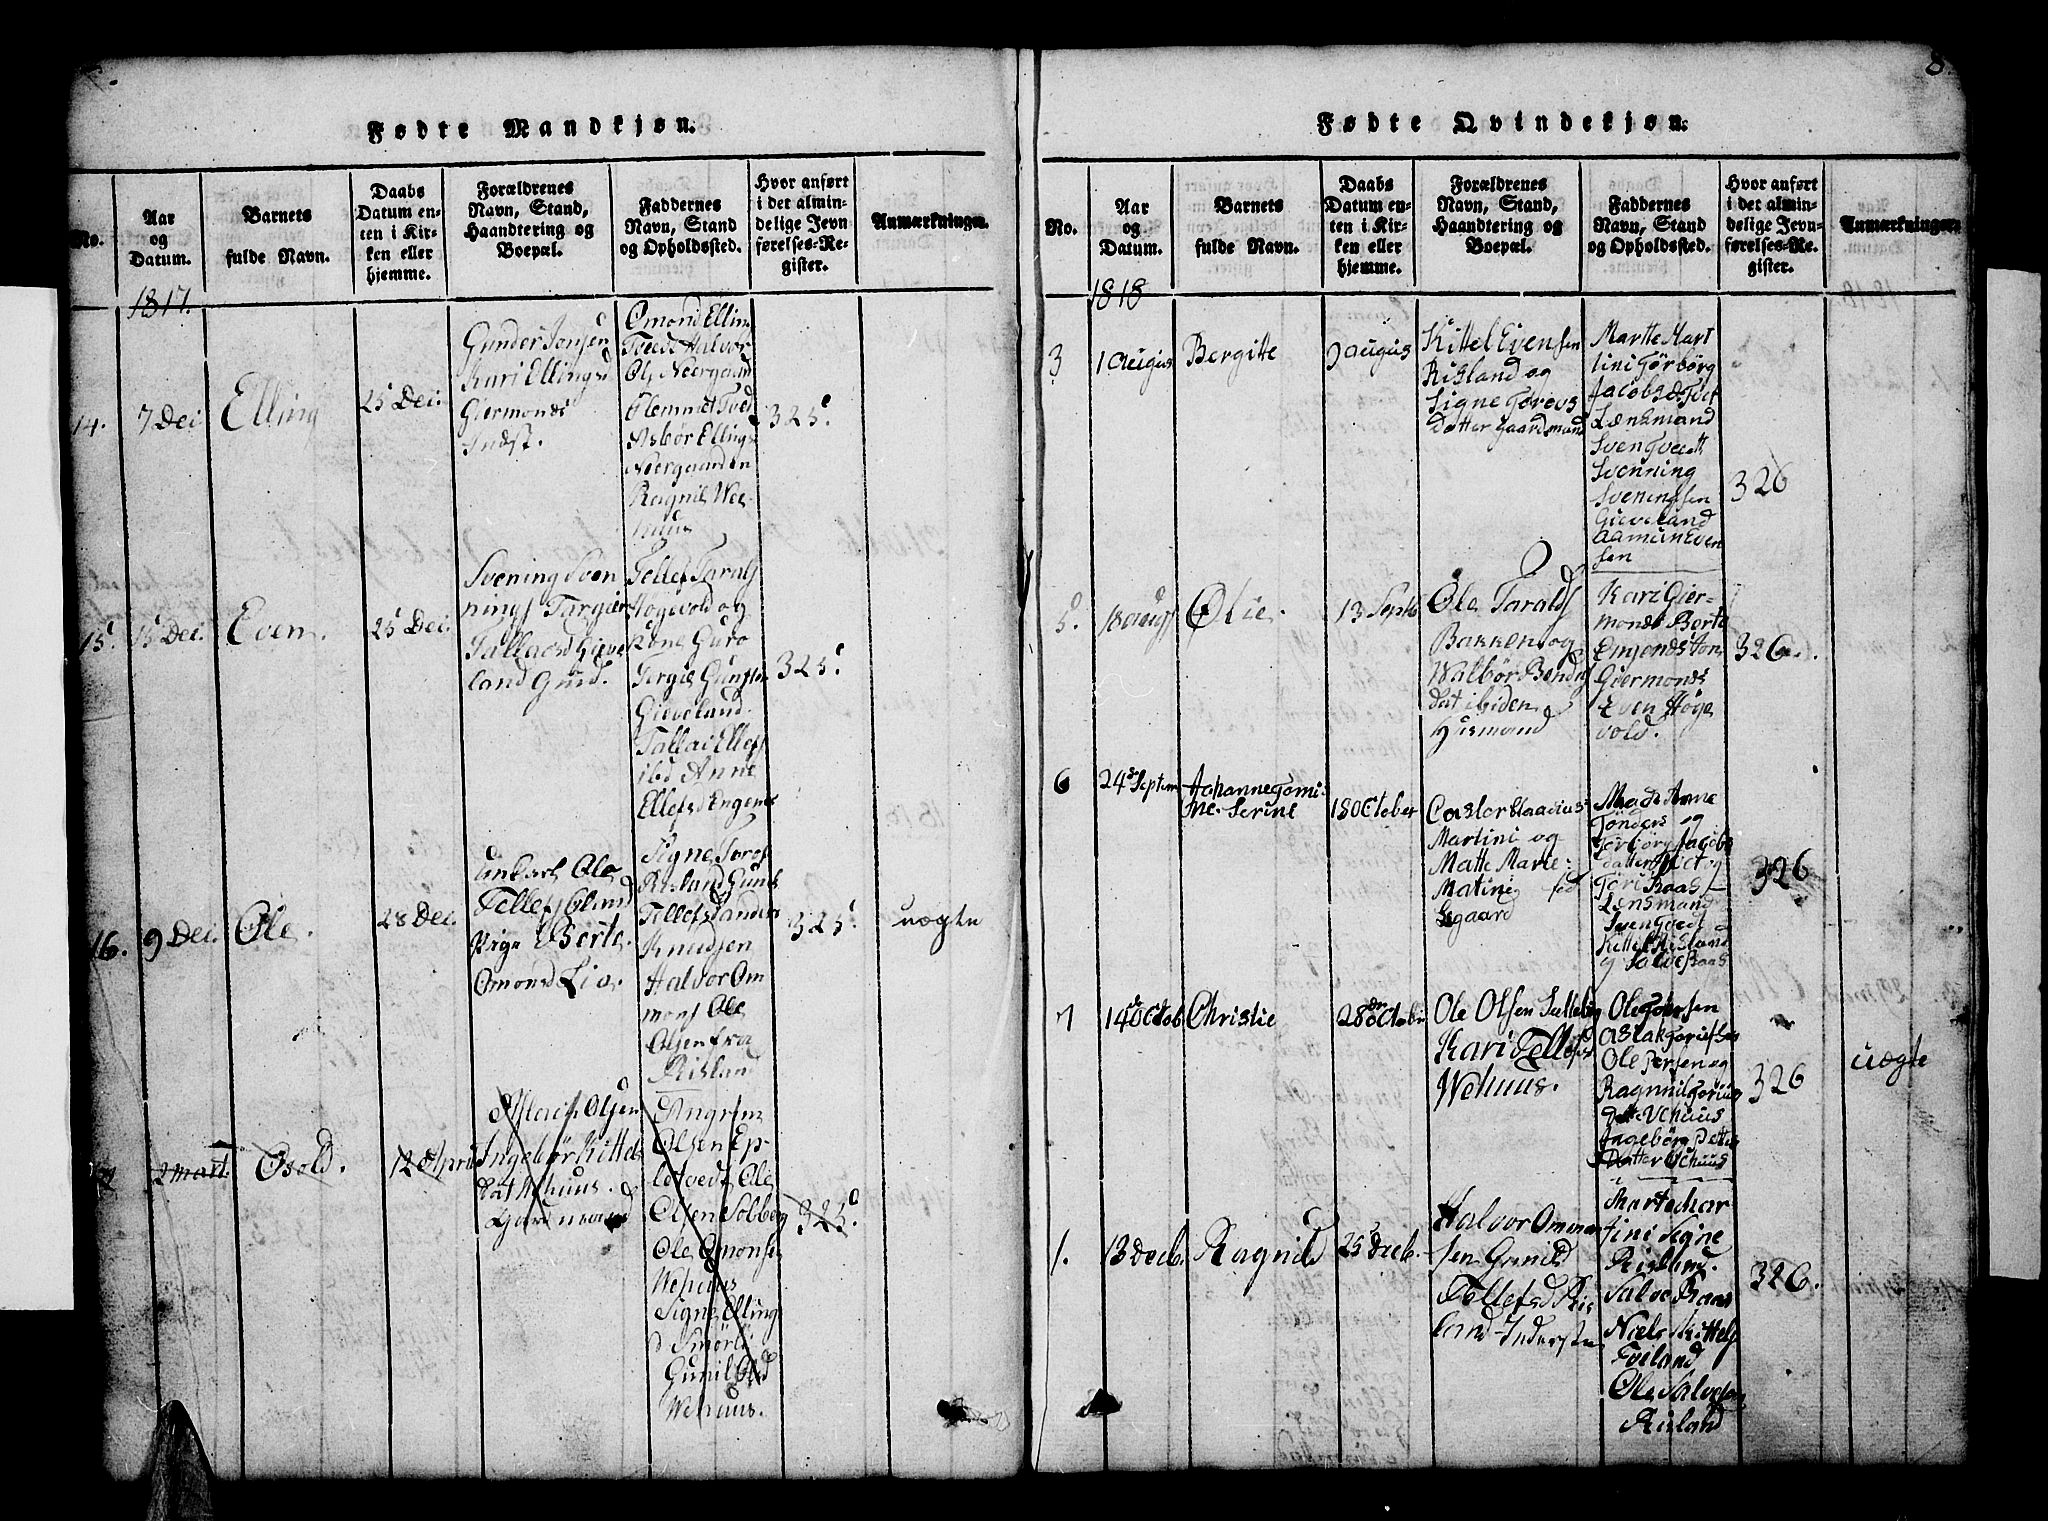 8
Fødte Mandkjøn.
No.
Aar
og
Datum.
Barnets
fulde Navn.
Daabs
Datum en-
ten i Kir-
ken eller
hjemme.
Forældrenes
Navn, Stand,
Haandtering og
Boepæl.
Faddernes
Navn, Stand
og Opholdssted.
Hvor anført
i det almin-
delige Jevn-
førelses-Re-
gister.
Anmærkninger.
1817.
14.
7 Dei
Elling
25 Dei.
Gunder Jonsen
Kari Ellingsd
Giermonds
Indst.
Omond Ellin
Tvedt Halvor
Ols Neergaard
Clemmet Tved
Asbør Ellings
Neergaarden
Ragnil Wee-
huus
325.
15.
15 Dei.
Even.
25 Dei.
Svening Sven
nings Targier
Tallacsd Gieve
land Gund.
Tellef Taralds
Høgevold og
Kone Guro
Tergie Gunsten
Gieveland
Tallac Ellefs
ibd Anne
Ellefsd Engene
325.
16.
9 Dei.
Ole.
28 Dei.
unkarl Ole
Tellefs
Pige Berte
Omonsd Lia.
Signe Torof
Risland Gund
Tellefs Sander
Knudsen
Halvor Om
mons Ole
Olsen fra
Risland
325.
uægte
2 Mart.
Osold.
12 April
Aslach Olsen
Ingebør Kittels
dat Wehuus.
Gaardmand
Olsen Ep-
letvedt Ole
Olsen Solberg
Ole Omonse
Wehuus
Signe Elling
d Smørli
Gunil Olsd
Wehuus.
325.
Fødte Qvindekjøn.
No.
Aar
og
Datum.
Barnets
fulde Navn.
Daabs
Datum en-
ten i Kir-
ken eller
hjemme.
Forældrenes
Navn, Stand,
Haandtering og
Boepæl.
Faddernes
Navn, Stand
og Opholdssted.
Hvor anført
i det almin-
delige Jevn-
førelses-Re-
gister.
Anmærkninger.
1818
3
1 Augus
Bergitte
9 augus
Kittel Evensen
Risland og
Signe Torevs
Datter gaardmand
Martte Mart
tini Törbörg
Jacobsd Tvet
Lænsmand
Sven Tvedt
Svenning
Sveningsen
Gieveland
Aamun Even
sen
326
5.
18 augs
Olie.
13 Septb
Ole Taralds
Bakken og
Walbör Bends
dat ibiden
Husmand
Kari Gier-
monds Berte
Omonds Jon
Giermonds
Even Høge
vold.
326.
6
24de Septem
Johanne Tomi-
ne Serine
18 October
Castor Claudius
Martini og
Matte Marie
Matine
Egaard
Mads Anne
Tönders og
Torbørg Jacobs
datter Tvet og
Töri Raas
Lensmand
Sven Tvedt
Kittel Risland
og Salve Raas
326
7
14de Octob
Christie
28de Octobr
Ole Olsen
Kari Tellefsd
Wehuus.
Ole Torsen
Aslak
Ole Persen og
Ragnnil
Dat: Vehuus
Ingebörg Petter
Datter Vehuus
326
uægte
1.
13 Decb.
Ragnild
25 Decb.
Halvor Ommon
sen Gunild
Tellefsd Ris
land Inderste
Marte Mar
tini Signe
Risland.
Salve Raas
Niels Kittels
Foiland
Ole Salvesen
Risland
326.